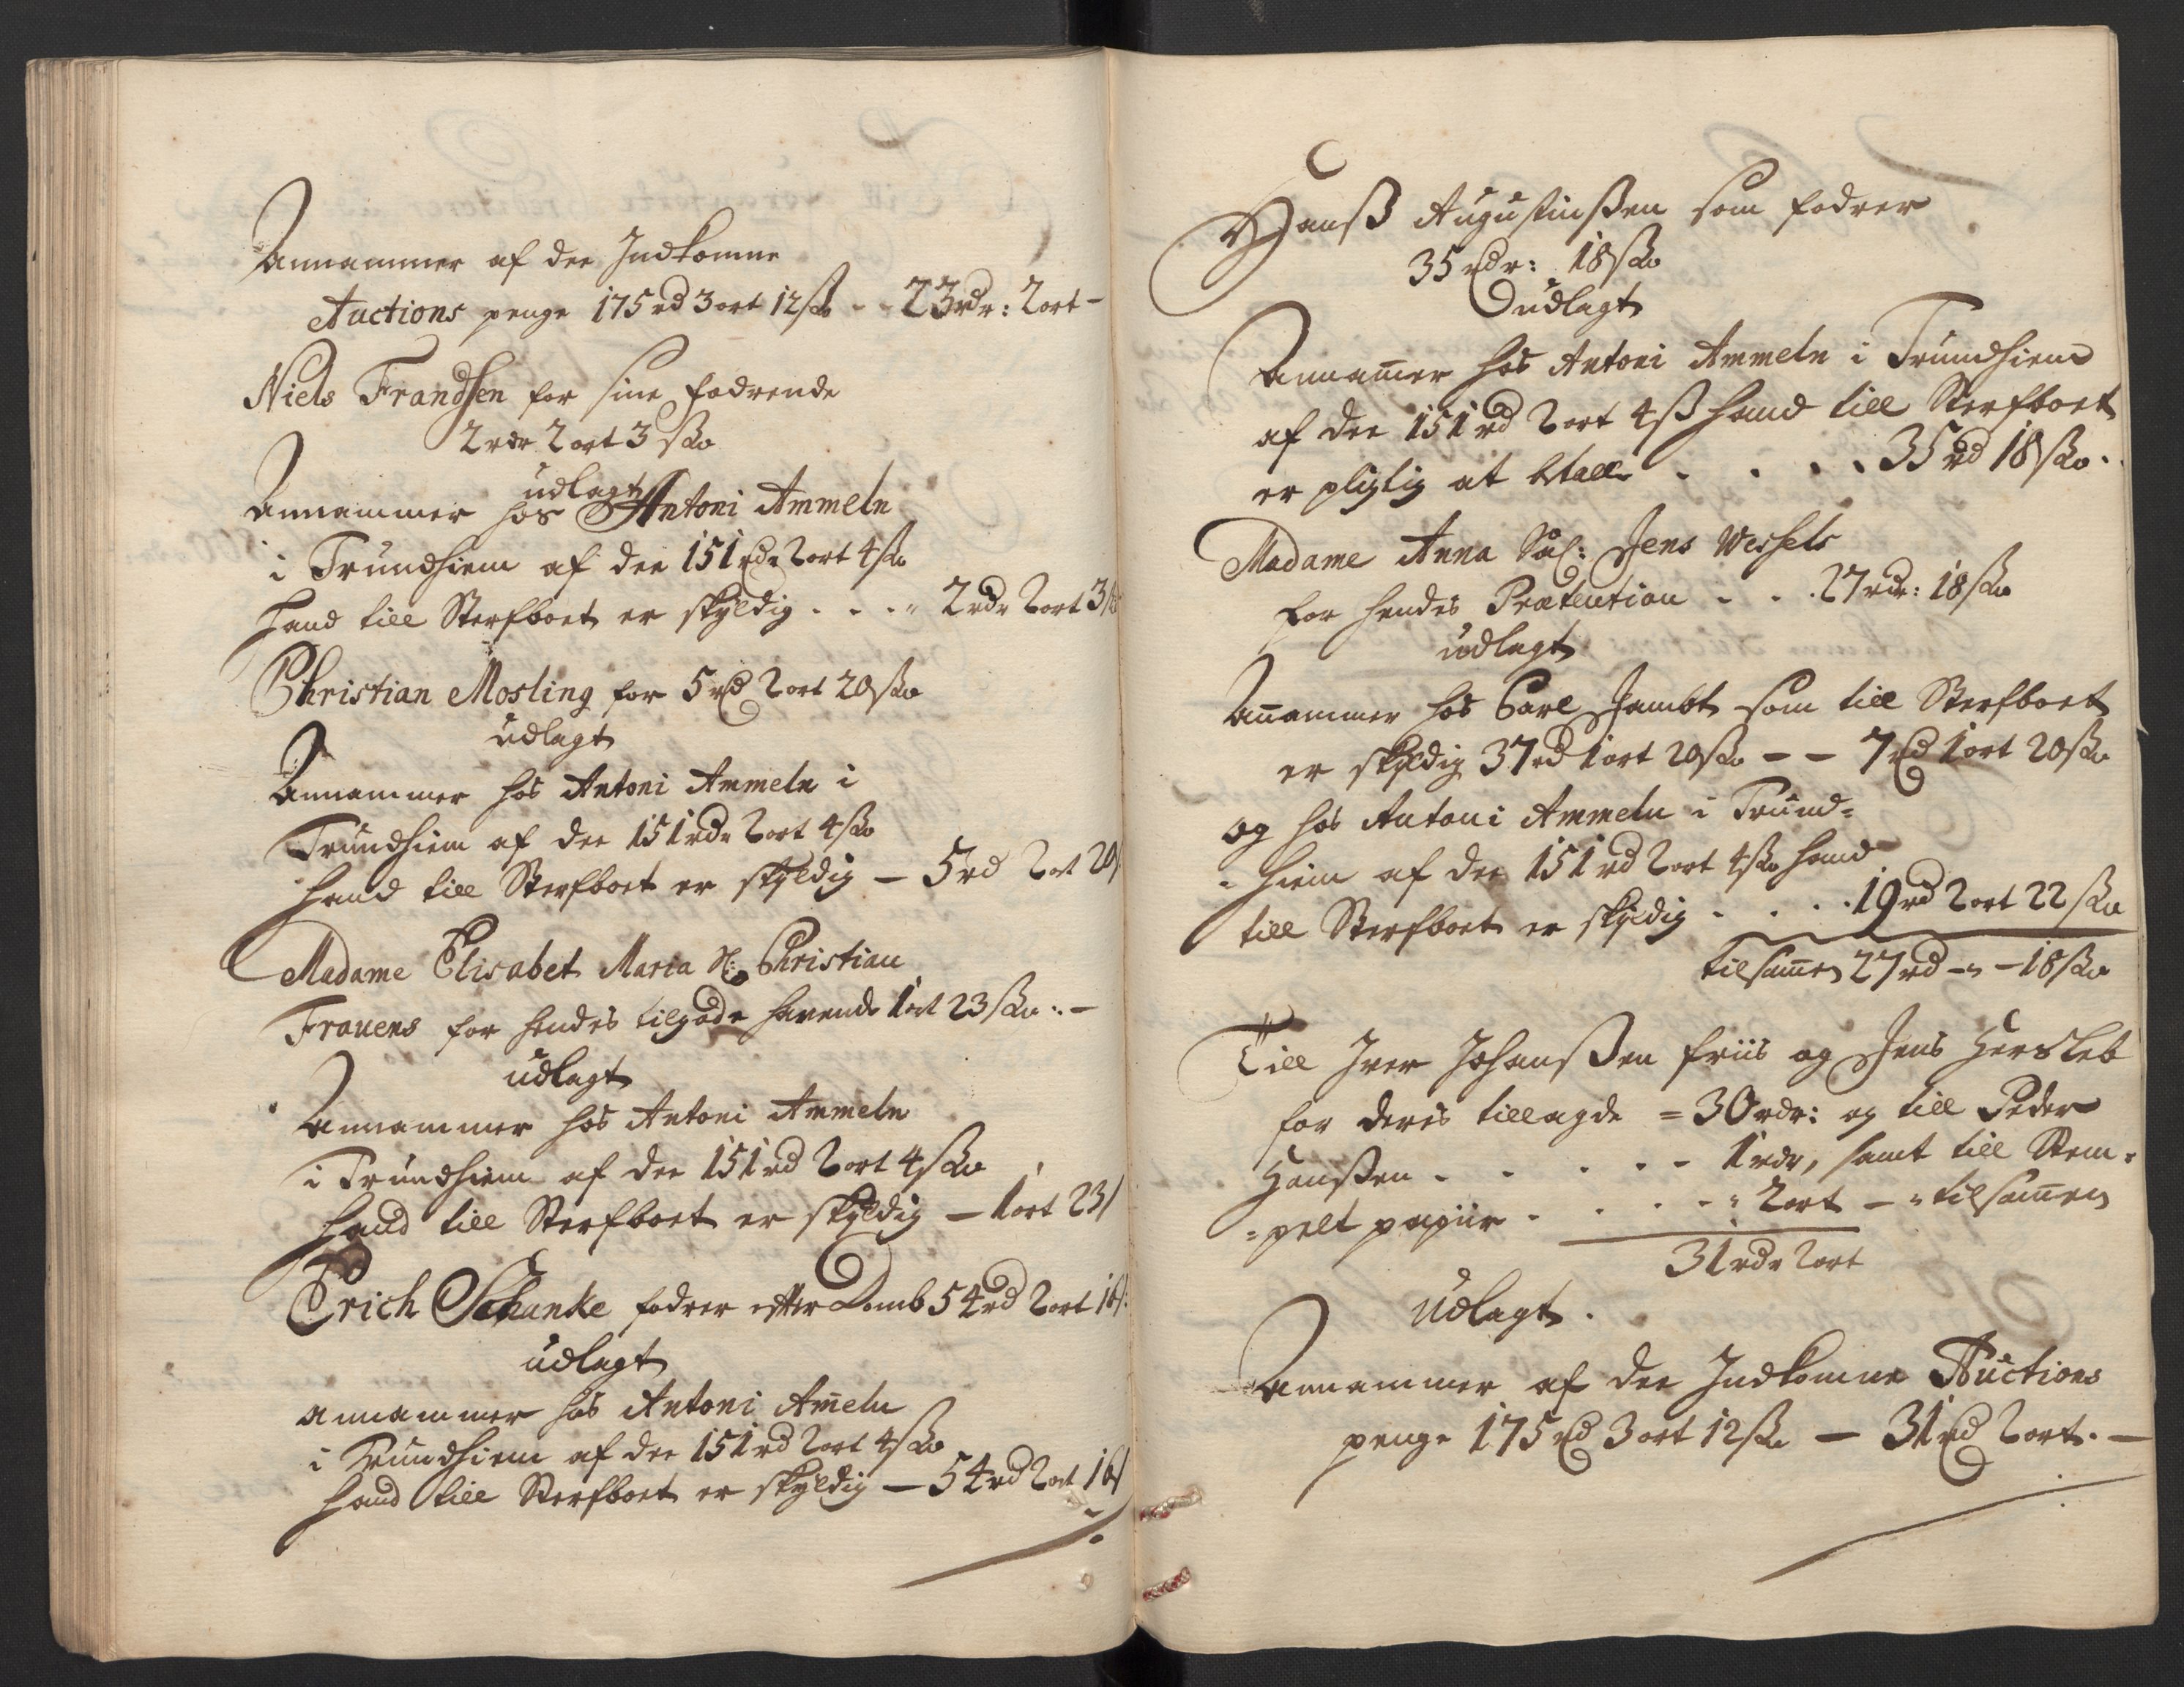 Annammer af dee Indkomne
Auctions penge 175 rd 3 ort 12 sk - - 23 rdr: 2 ort -
Niels Frandsen for sine fodrende
2 rdr 2 ort 3 sk
udlagt
Annammer hos Antoni Ammeln
i Trundhiem af dee 151 rdr 2 ort 4 sk
hand till Sterfboet er skyldig - - - 2 rdr 2 ort 3 sk
Christian Mosling for 5 rd 2 ort 20 sk
udlagt
Annammer hos Antoni Ammeln i
Trundhiem af dee 151 rdr 2 ort 4 sk
hand till Sterfboet er skyldig - 5 rd 2 ort 20 s
Madame Elisabet Maria Sl: Christian
Frauens for hendes tilgode havende 1 ort 23 sk: -
udlagt
Annammer hos Antoni Ammeln
i Trundhiem af dee 151 rd 2 ort 4 sk
hand till Sterfboet er skyldig - 1 ort 23 s
Erich Schanke fodrer efter Domb 54 rd 2 ort 16 s:
udlagt
annammer hos Antoni Am̄eln
i Trundhiem af dee 151 rd 2 ort 4 sk
hand till Sterfboet er skyldig - 54 rd 2 ort 16 s
Hanß Augustinßen som fodrer
35 rdr: 18 sk
udlagt
Annam̄er hos Antoni Ammeln i Trundhiem
af dee 151 rd 2 ort 4 ß hand till Sterfboet
er pligtig at betalle - . . . 35 rd 18 sk.
Madame Anna Sal: Jens Wessels
for hendes Prætention - - . 27 rdr: 18 sk
udlagt
Anammer hos Carl Jambt som till Sterfboet
er skyldig 37 rd 1 ort 20 sk - - 7 rd 1 ort 20 sk
og hos Antoni Ammeln i Trund=
=hiem af dee 151 rd 2 ort 4 sk hand
till Sterfboet er skyldig . . . . 19 rd 2 ort 22 sk
tilsam̄en 27 rd - " - 18 sk
Till Iver Johanßen friis og Jens Hersleb
for deris tillagde = 30 rdr: og till Peder
Hanßen - - - - - - 1 rdr, samt till Stem=
=pelt papiir - . . - - " 2 ort - " tilsam̄en
31 rdr 2 ort
Udlagt.
Annammer af dee Indkomne Auctions
penge 175 rd 3 ort 12 sk - 31 rd 2 ort. -